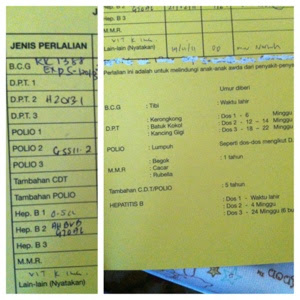 JENIS PERLALIAN
B.C.G RK 1388
D.P.T. 1
D.P.T. 2 H2031
D.P.T. 3
POLIO 1
POLIO 2 G5511-2
POLIO 3
Tambahan CDT
Tambahan POLIO
Hep. B 1 0-5cc
Hep. B 2
Hep. B 3
M.M.R.
VIT K
Lain-lain (Nyatakan)
Hep. B 3
M.M.R.
Lain-lain (Nyatakan)
Perlalian ini adalah untuk melindungi anak-anak awda dari penyakit
Umur diberi
B.C.G : Tibi : Waktu lahir
: Kerongkong : Dos 1 - 6 Minggu
D.P.T : Batuk Kokol : Dos 2 - 12 - 14 Minggu
: Kancing Gigi : Dos 3 - 18 - 22 Minggu
POLIO : Lumpuh Seperti dos-dos mengikut D.
: Begok : 1 tahun
M.M.R : Cacar
: Rubella
Tambahan C.D.T/POLIO : 5 tahun
HEPATITIS B : Dos 1 - Waktu lahir
: Dos 2 - 4 Minggu
: Dos 3 - 24 Minggu (6 bu